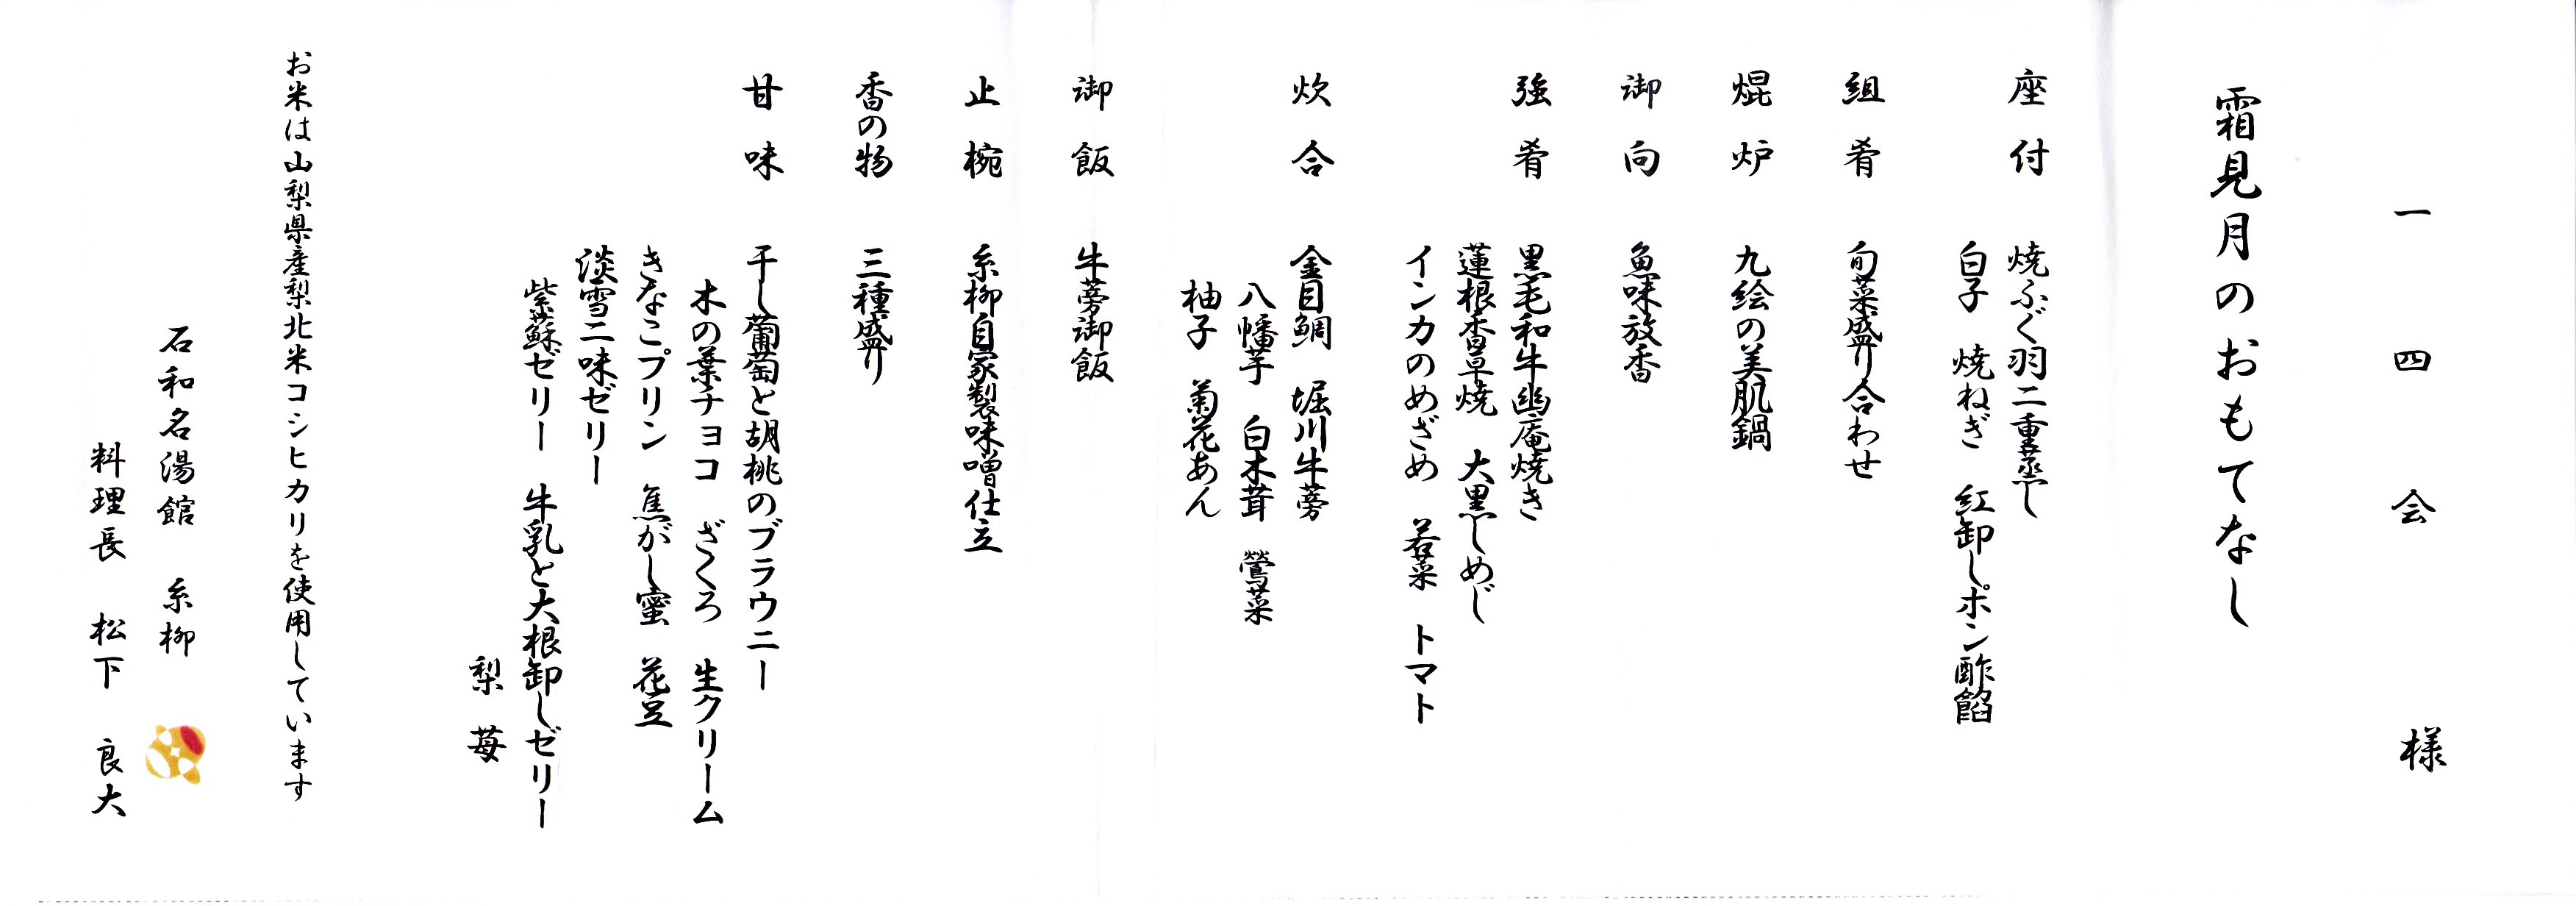 一四会 様
霜見月のおもてなし
座付 焼ふぐ羽二重蒸し
白子 焼ねぎ 紅卸しポン酢餡
組肴 旬菜盛り合わせ
焜炉 九絵の美肌鍋
御向 魚味放香
強肴 黒毛和牛幽庵焼き
蓮根香草焼 大黒しめじ
インカのめざめ 若菜 トマト
炊合 金目鯛 堀川牛蒡
八幡芋 白木茸 鶯菜
柚子 菊花あん
御飯 牛蒡御飯
止椀 糸柳自家製味噌仕立
香の物 三種盛り
甘味 干し葡萄と胡桃のブラウニー
木の葉チョコ ざくろ 生クリーム
きなこプリン 焦がし蜜 花豆
淡雪二味ゼリー
紫蘇ゼリー 牛乳と大根卸しゼリー
梨 苺
お米は山梨県産梨北米コシヒカリを使用しています
石和名湯館 糸柳
料理長 松下 良大